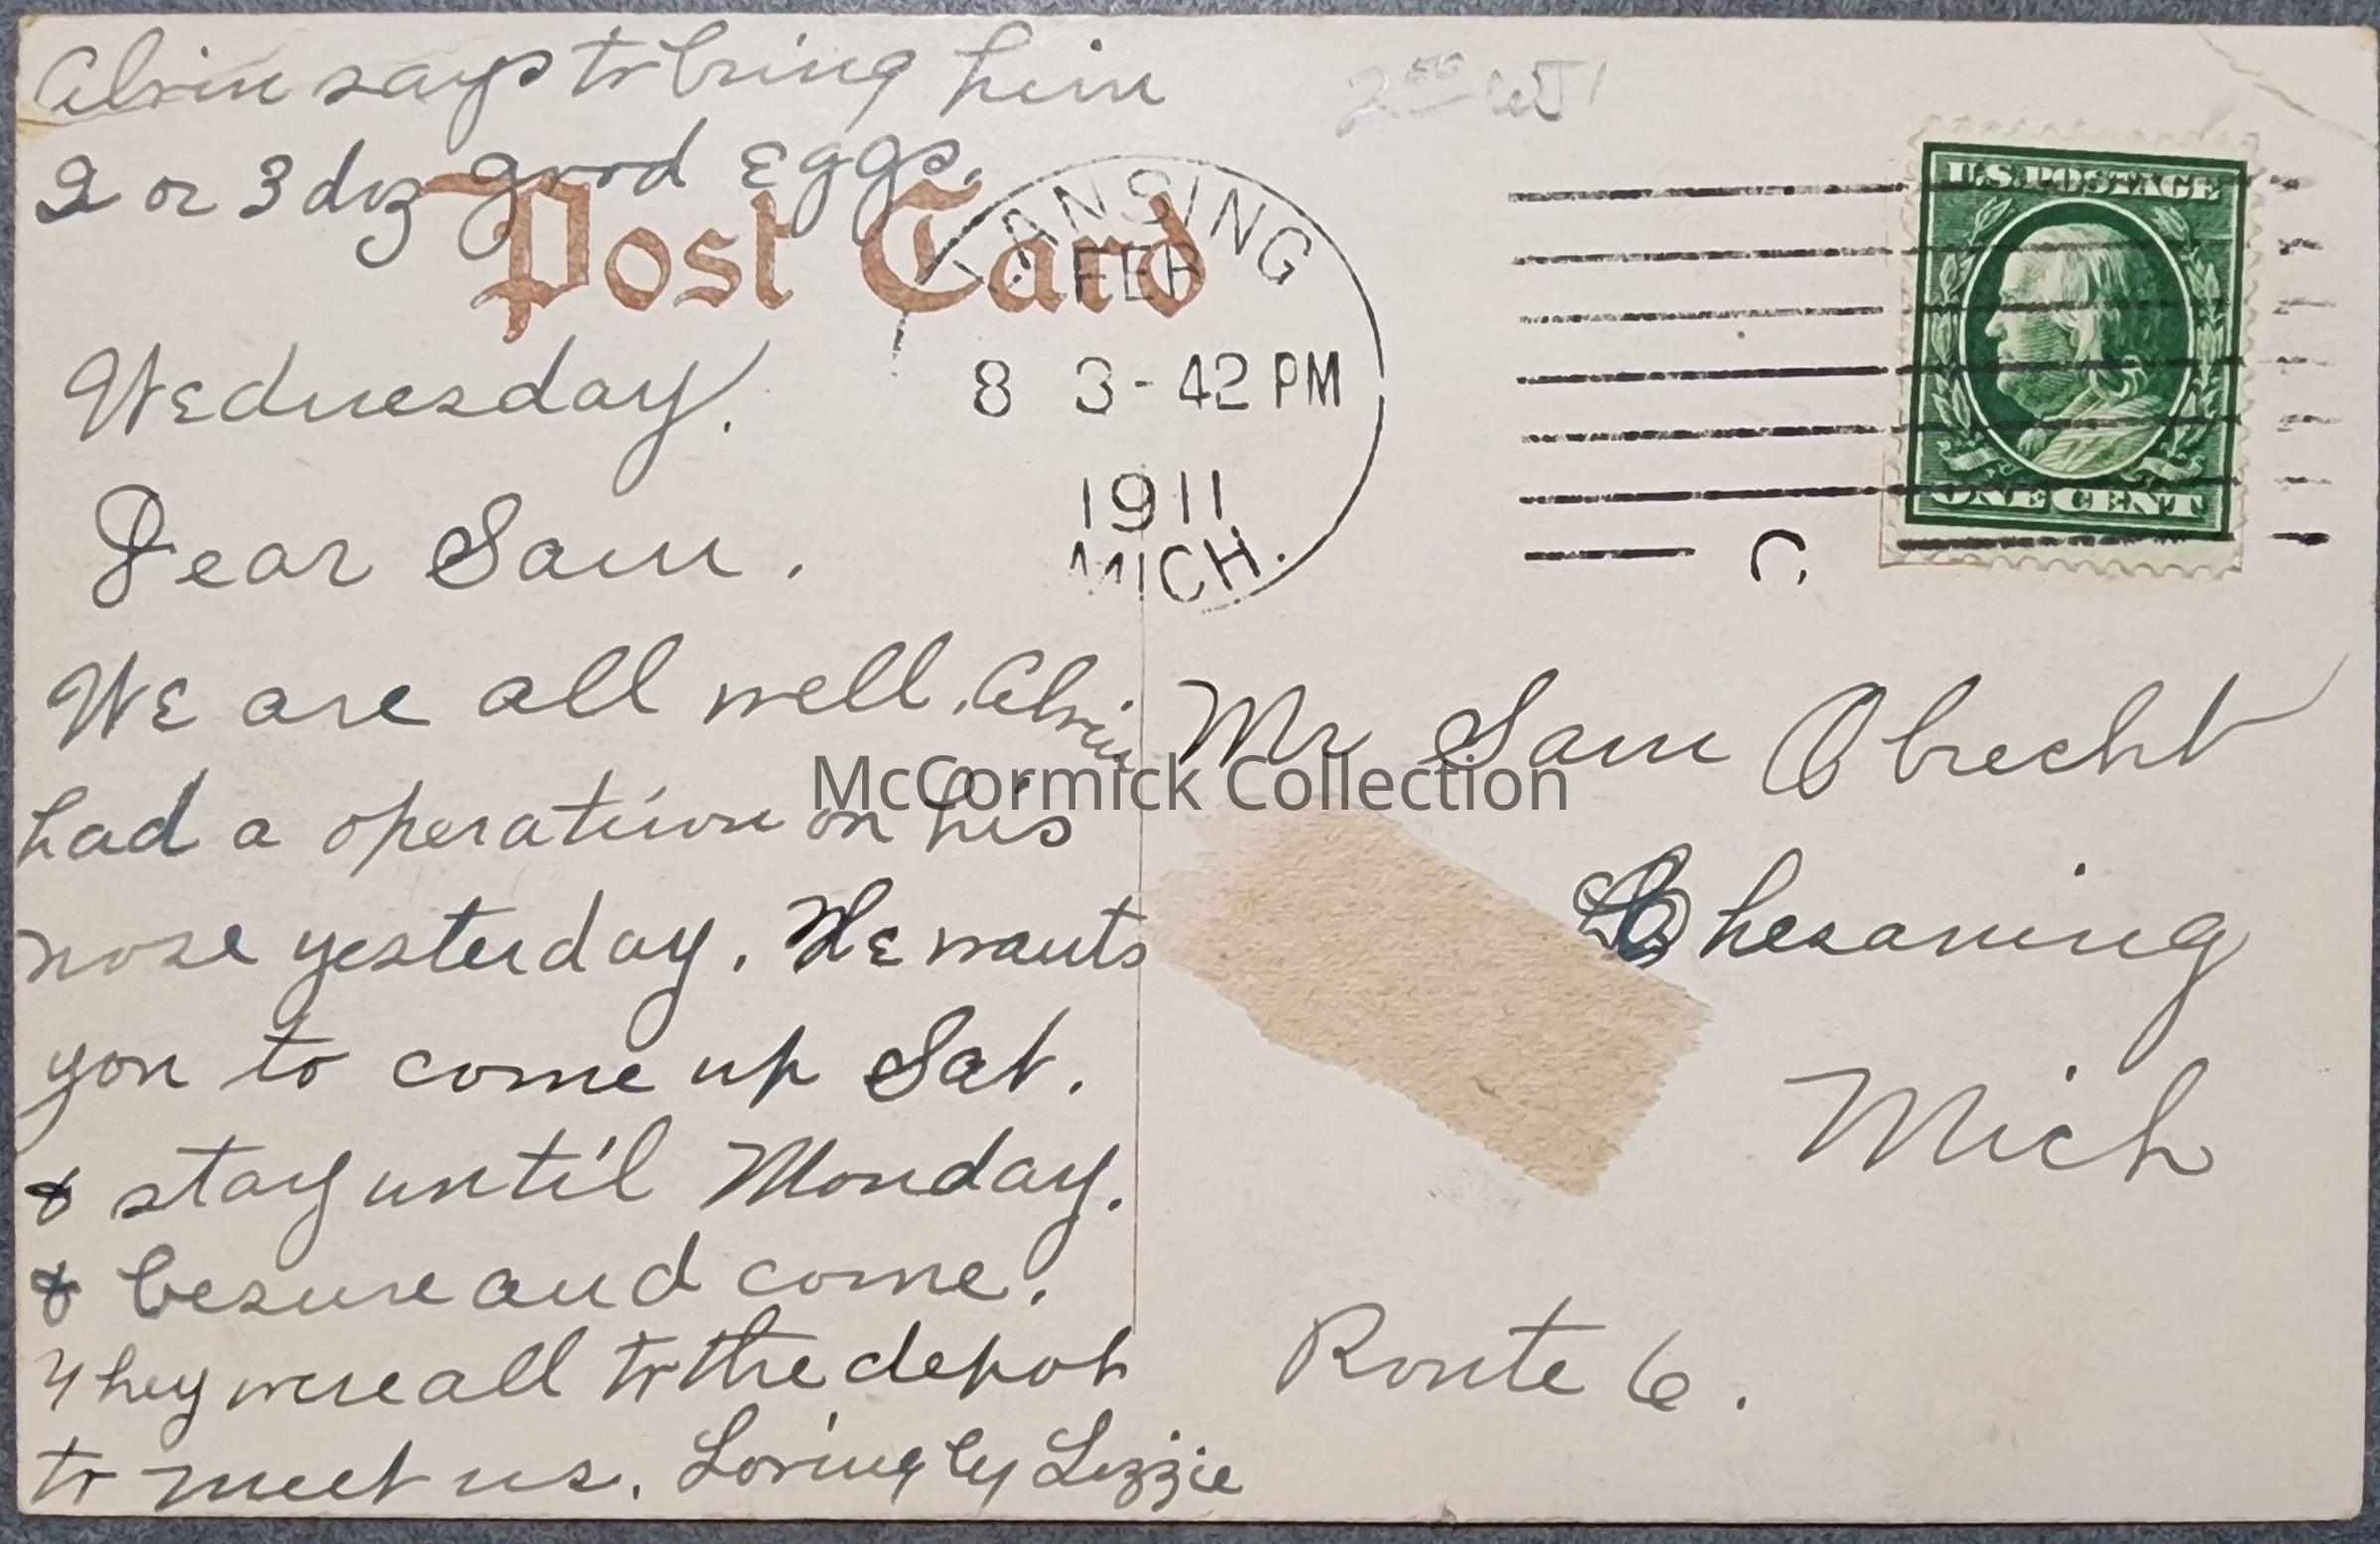 Alvin says to bring him
2 or 3 doz good Eggs.
Post Card
LANSING
FEB
8 3-42 PM
1911
MICH.
U.S. POSTAGE
ONE CENT
C
Wednesday.
Dear Sam.
We are all well. Alvin
had a operation on his
nose yesterday. He wants
you to come up Sat.
& stay until Monday.
& besure and come.
They were all to the depot
to meet us. Lovingly Lizzie
Mr Sam Obrecht
Chesaning
Mich
Route 6.
McCormick Collection